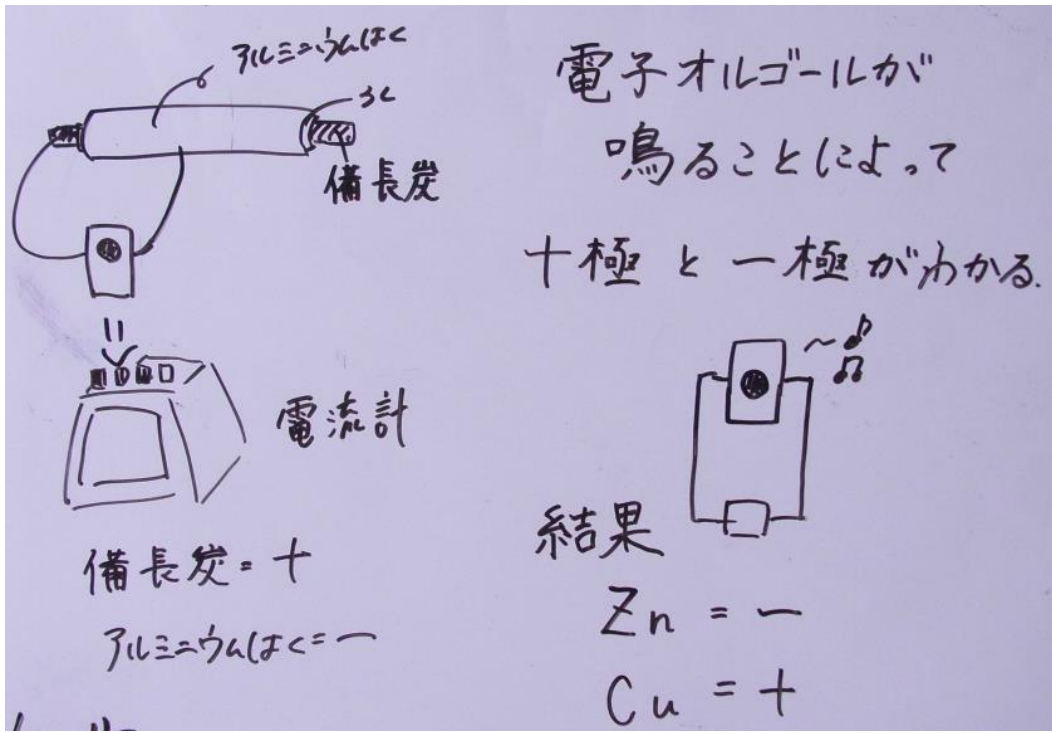 アルミニウムはく
ろし
備長炭
電流計
備長炭=+
アルミニウムはく=ー
電子オルゴールが
鳴ることによって
+極とー極がわかる.
結果
Zn = ー
Cu = +